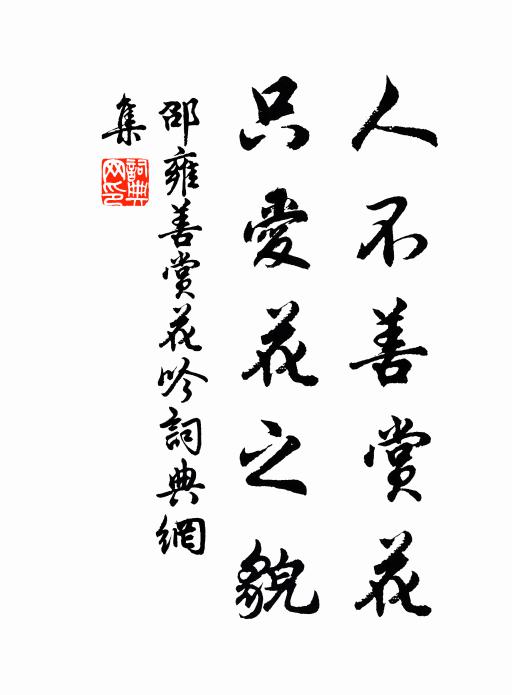 人不善賞花
只愛花之貌
邵雍善賞花吟詞典網
集
詞典網印